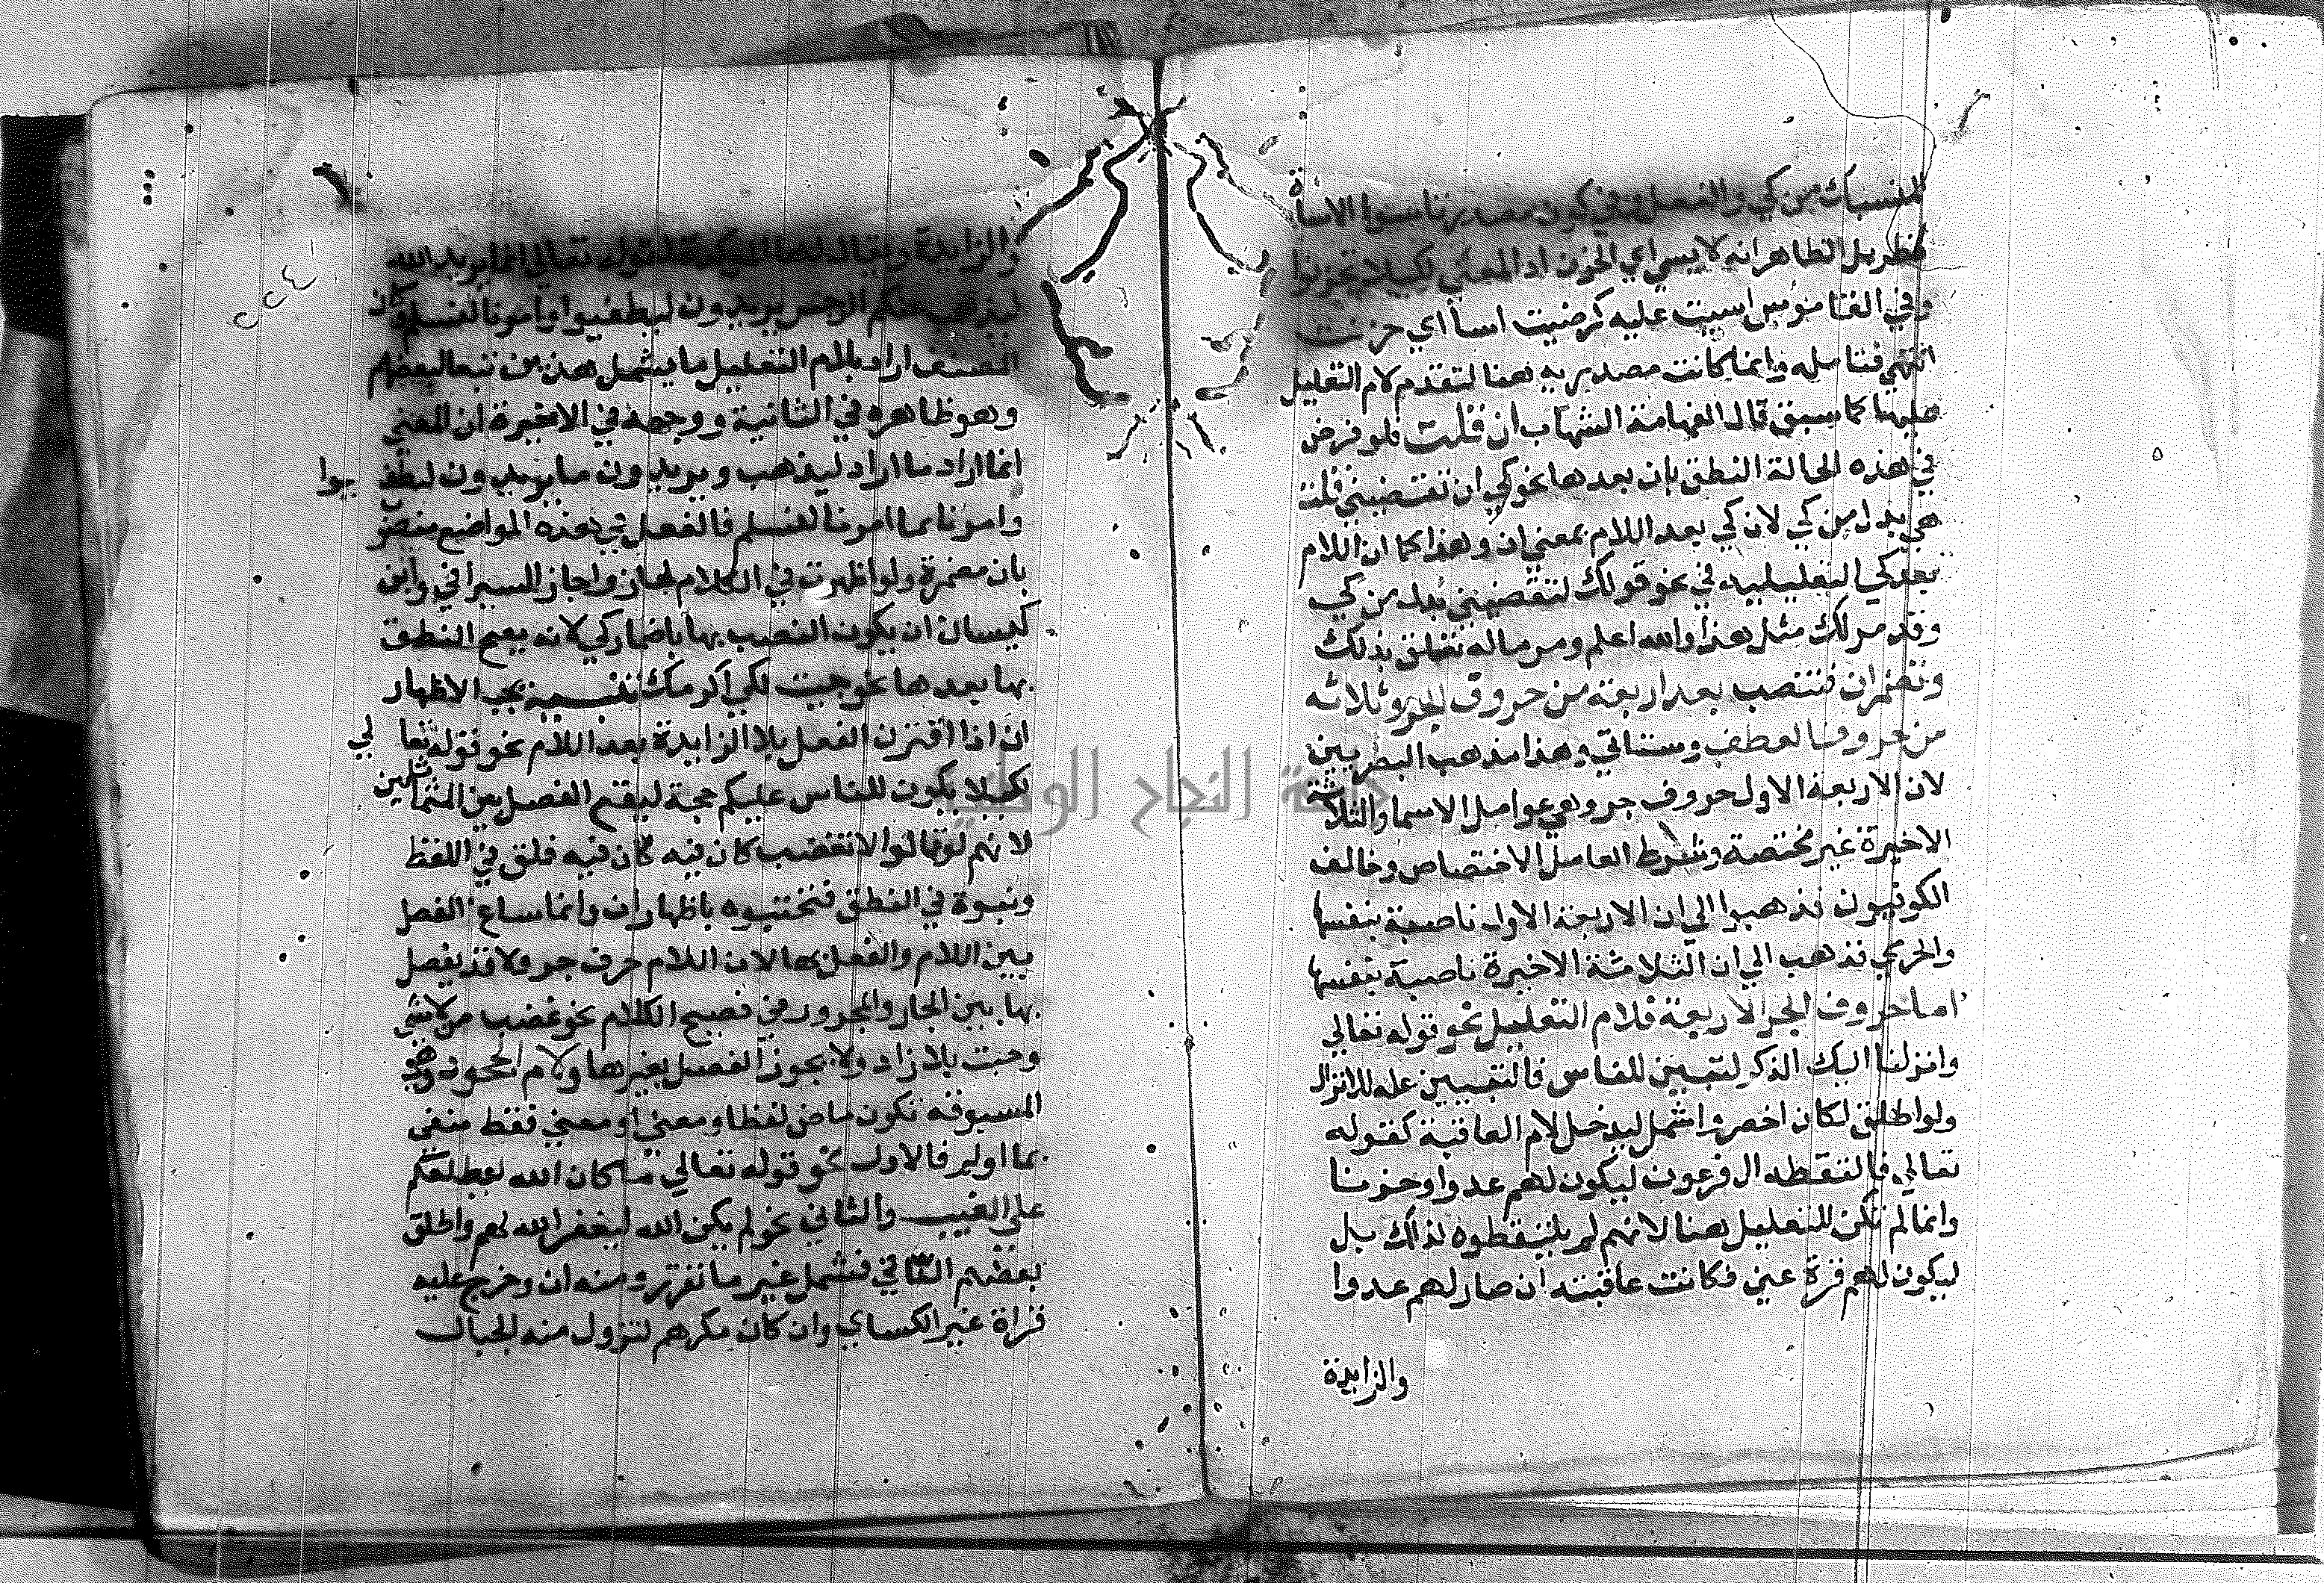 المنسبك من كي والفعل وفي كون مصدرنا سوا الاساة
نظر بل الظاهر انه لا يسي اي الحزن اذ المعني لكيلا تحزنوا
وفي القاموس اسيت عليه كرضيت اسا اي حزنت
انتهي فتامله وانما كانت مصدريه هنا لتقدم لام التعليل
عليها كما سبق قال الفهامة الشهاب ان قلت فلو فرض
في هذه الحالة النطق بان بعدها نحو كي ان تقضيني قلت
هي بدل من كي لان كي بعد اللام بمعني ان وهذا كما ان اللام
بعد كي التعليليه في نحو قولك لتقضيني بدل من كي
وقد مر لك مثل هذا والله اعلم ومر ماله تعلق بذلك
وتضمر ان فتنصب بعد اربعة من حروف الجر وثلاثه
من حروف العطف وستاتي وهذا مذهب البصريين
لان الاربعة الاول حروف جر وهي عوامل الاسما والثلاثة
الاخيرة غير مختصة وشرط العامل الاختصاص وخالف
الكوفيون فذهبوا الي ان الاربعة الاول ناصبة بنفسها
والجرمي فذهب الي ان الثلاثة الاخيرة ناصبة بنفسها
اما حروف الجر الاربعة فلام التعليل نحو قوله تعالي
وانزلنا اليك الذكر لتبين للناس فالتبيين عله للانزال
ولو اطلق لكان اخصر واشمل ليدخل لام العاقبة كقوله
تعالي فالتقطه ال فرعون ليكون لهم عدوا وحزنا
وانما لم تكن للتعليل هنا لانهم لم يلتقطوه لذلك بل
ليكون لهم قرة عين فكانت عاقبته ان صار لهم عدوا
والزايدة
والزايدة ويقال لها الموكدة لقوله تعالي انما يريد الله
ليذهب عنكم الرجس يريدون ليطفيوا وامرنا لنسلم وكان
المصنف اراد بلام التعليل ما يشمل هذين تبعا لبعضهم
وهو ظاهر في الثانية ووجهه في الاخيرة ان المعني
انما اراد ما اراد ليذهب ويريدون ما يريدون ليطفيوا
وامرنا بما امرنا لنسلم فالفعل في هذه المواضع منصوب
بان مضمرة ولو اظهرت في الكلام لجاز واجاز السيرافي وابن
كيسان ان يكون النصب بها باضمار كي لانه يصح النطق
بها بعدها نحو جيت لكي اكرمك تنبيه يجب الاظهار
ان اذا اقترن الفعل بلا الزايدة بعد اللام نحو قوله تعالي
لكيلا يكون للناس عليكم حجة ليقع الفصل بين المتماثلين
لانهم لو قالوا لا تغضب كان فيه كان فيه قلق في اللفظ
ونبوة في النطق فتجنبوه باظهار ان وانما ساغ الفصل
بين اللام والفعل بها لان اللام حرف جر ولا قد يفصل
بها بين الجار والمجرور في فصيح الكلام نحو غضب من لا شي
وجيت بلا زاد ولا يجوز الفصل بغيرها ولام الجحود وهي
المسبوقه بكون ماض لفظا ومعني او معني فقط منفي
بما او لم فالاول نحو قوله تعالي ما كان الله ليطلعكم
علي الغيب والثاني نحو لم يكن الله ليغفر الله لهم واطلق
بعضهم النافي فشمل غير ما تقرر ومنه ان وخرج عليه
قراة غير الكساي وان كان مكرهم لتزول منه الجبال
جامعة النجاح الوطنية